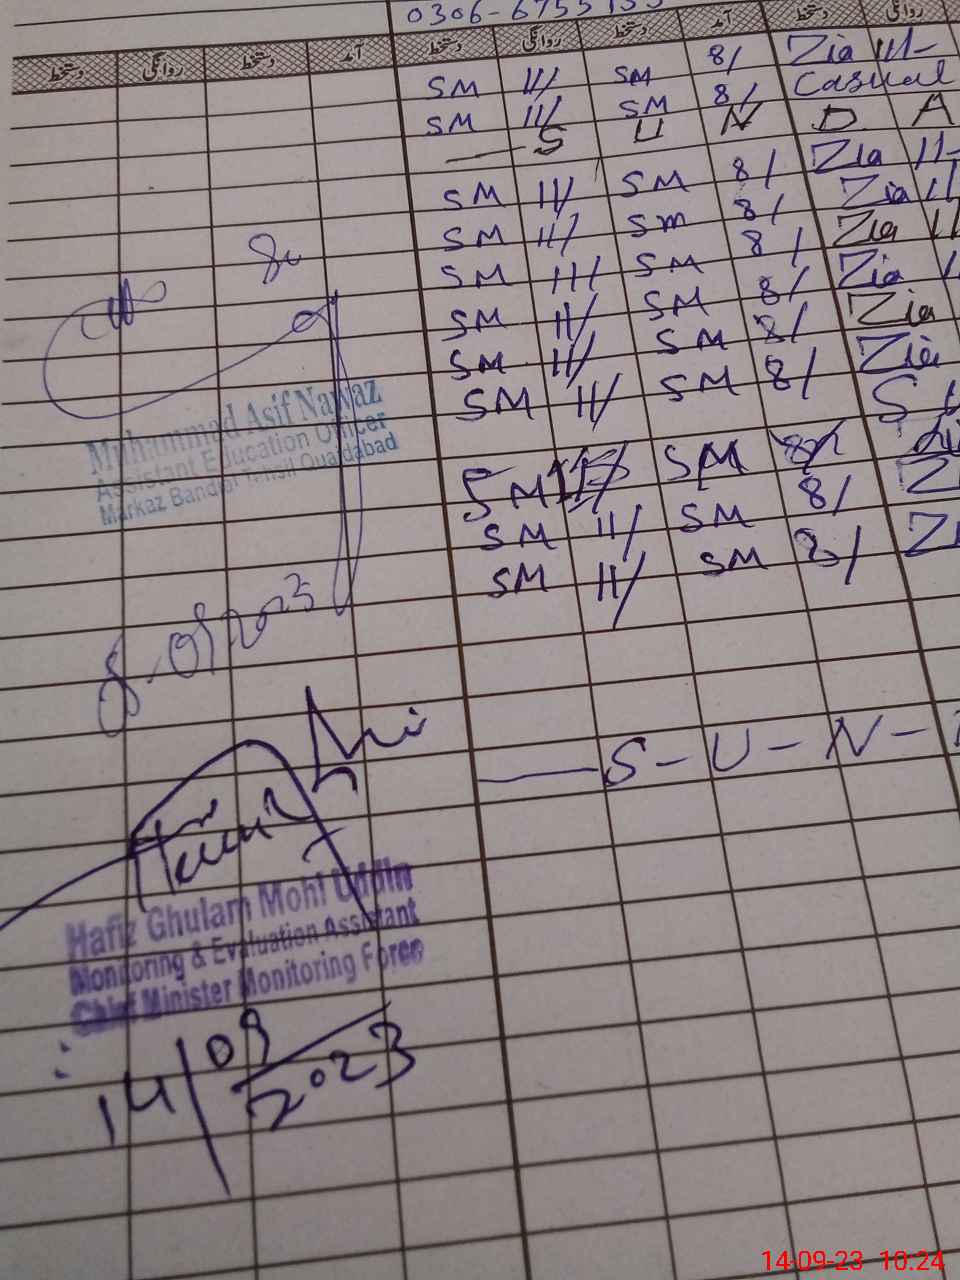 0306-6755
دستخط روانگی دستخط آمد دستخط روانگی دستخط آمد دستخط روانگی
SM 11/ SM 8/ Zia 11/-
SM 11/ SM 8/ Casual
S U N D A
SM 11/ SM 8/ Zia 11-
SM 11/ SM 8/ Zia 11
SM 11/ SM 8/ Zia 11
SM 11/ SM 8/ Zia
SM 11/ SM 8/ Zia
SM 11/ SM 8/ Zia
SM 11/ SM 8/ S
SM SM
SM 11/ SM 8/
SM 11/ SM 8/
S - U - N -
Muhammad Asif Nawaz
Assistant Education Officer
Markaz Bandial Tehsil Quaidabad
Hafiz Ghulam Mohi Uddin
Monitoring & Evaluation Assistant
Chief Minister Monitoring Force
14/09/2023
14-09-23 10:24